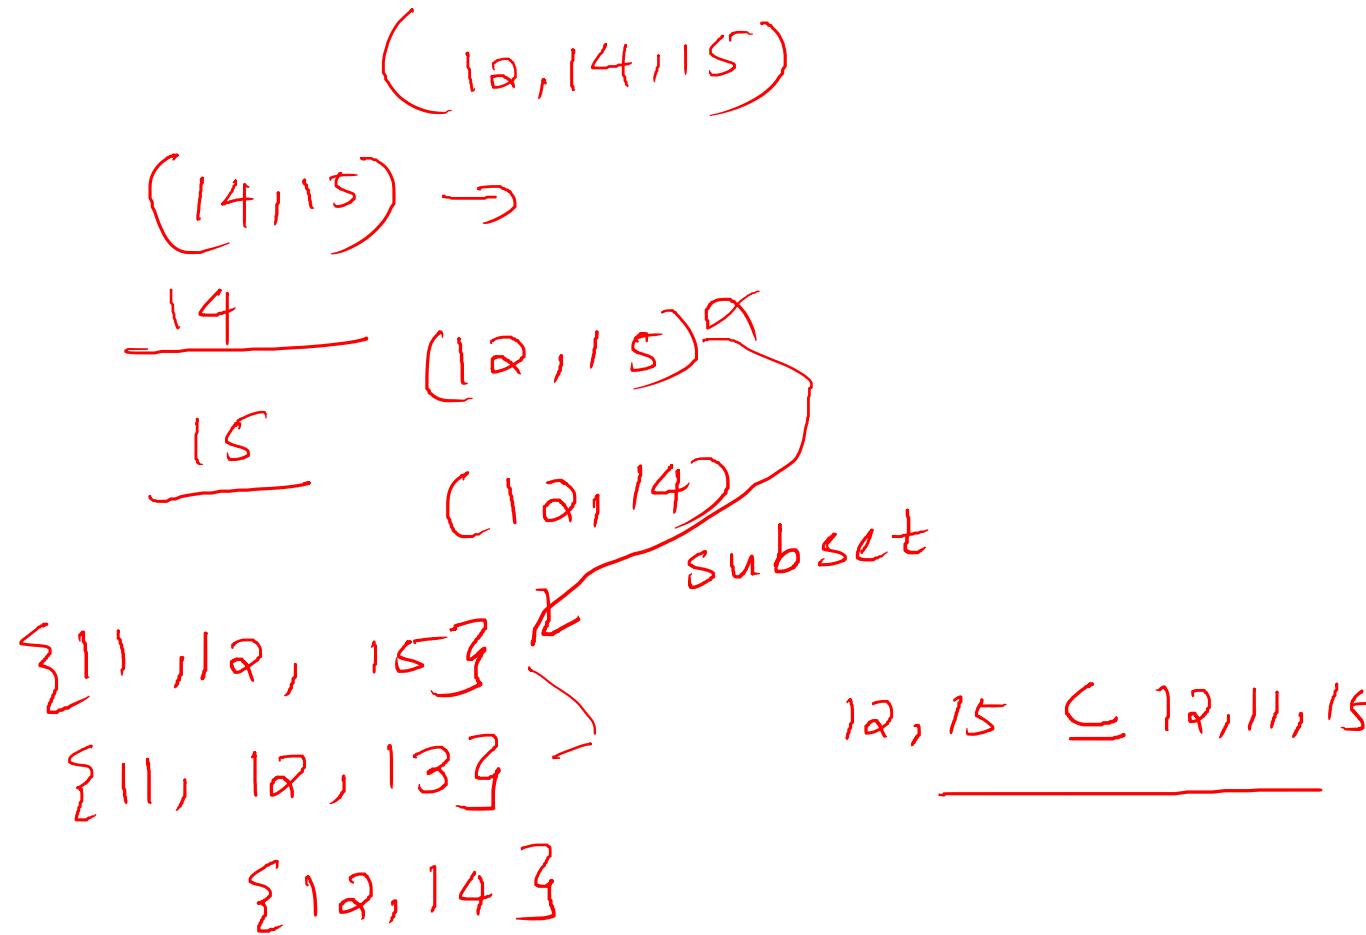 (12,14,15)
(14,15) →
14
(12,15) α
15
(12,14)
subset
{11,12, 15}
12,15 ⊆ 12,11,15
{11, 12,13}
{12,14}